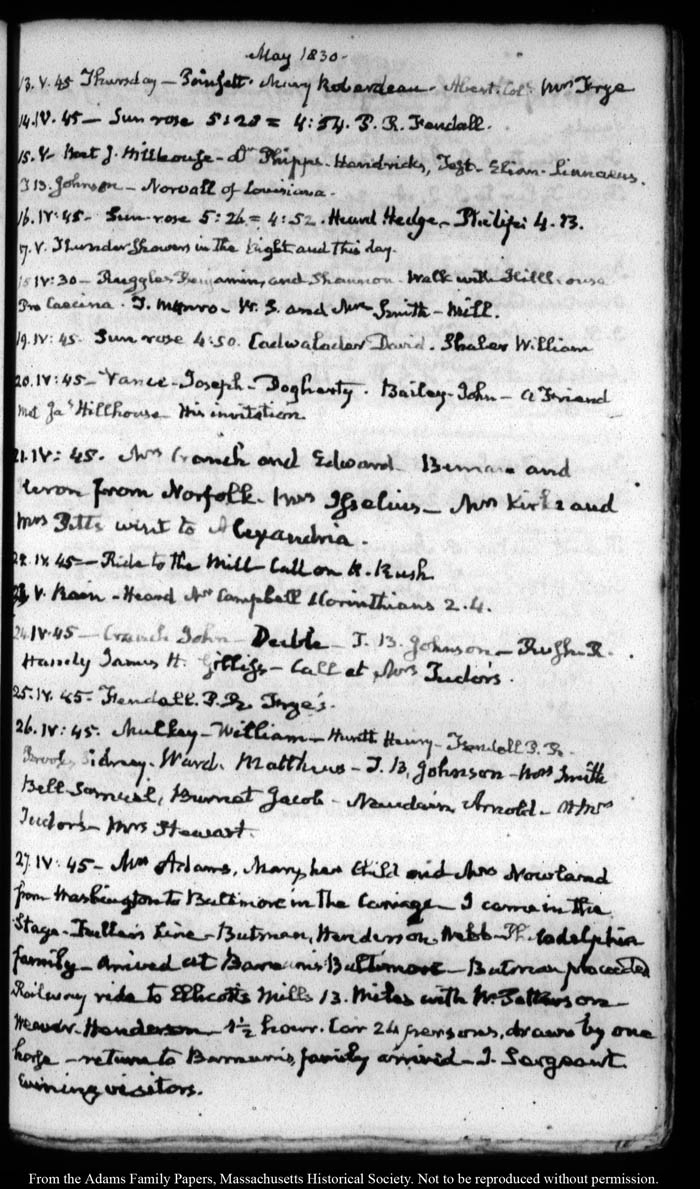 May 1830.
13. V. 45 Thursday – Poinsett. Mary Roberdeau. Abert. Col. Mrs Frye
14. IV. 45 – Sun rose 5:28 = 4:54. P. R. Fendall.
15. V. J. Hillhouse – Dr Phipps. Hendricks, Taft. Elian. Linnaeus.
J B. Johnson – Norvall of Louisiana.
16. IV: 45 – Sun rose 5:26 = 4:52. Heard Hedge – Philipi 4. 13.
17. V. Thunder Showers in the Night and this day.
18 IV: 30 – Ruggles Benjamin, and Shannon. Walk with Hillhouse
J. Munro – W. S. and Mrs Smith – Mill.
19. IV: 45. Sun rose 4:50. Cadwalader David. Shaler William
20. IV: 45 – Vance – Joseph – Dogherty. Bailey – John – a Friend
Met Jas Hillhouse – His invitation
21. IV: 45. Mrs Cranch and Edward and
from Norfolk. Mrs Iglehart – Mrs Kirk and
Mrs Pitts visit to Alexandria.
22. IV. 45 – Ride to the Mill Call on R. Rush
23. V. Rain – Heard Mr Campbell 1 Corinthians 2. 4.
24. IV. 45 – Cranch John – Deible – J. B. Johnson – Rush R.
Handy James H. Gilliss – Call at Mrs Tudor's.
25. IV. 45. Fendall. P. R. Frye's.
26. IV: 45. Mulkey – William – Hewitt Henry – Fendall P. R.
Brooks, Sidney. Ward. Matthew – J. B. Johnson – Mrs Smith
Bell Samuel, Burnet Jacob – Naudain, Arnold – at Mrs
Tudor's – Mrs Stewart.
27. IV: 45 – Mrs Adams, Mary, her Child and Mrs Nowland
from Washington to Baltimore in the Carriage – I came in the
Stage – Fuller's Line – Bateman, Henderson. Webb – Philadelphia
family – arrived at Barnum's Baltimore – Bateman proceeded
Railway ride to Ellicotts Mills 13. Miles with W. Patterson
Henderson – 1½ hour. Car 24 persons, drawn by one
horse – return to Barnum's, family arrived – J. Sergeant.
Evening visitors.
From the Adams Family Papers, Massachusetts Historical Society. Not to be reproduced without permission.